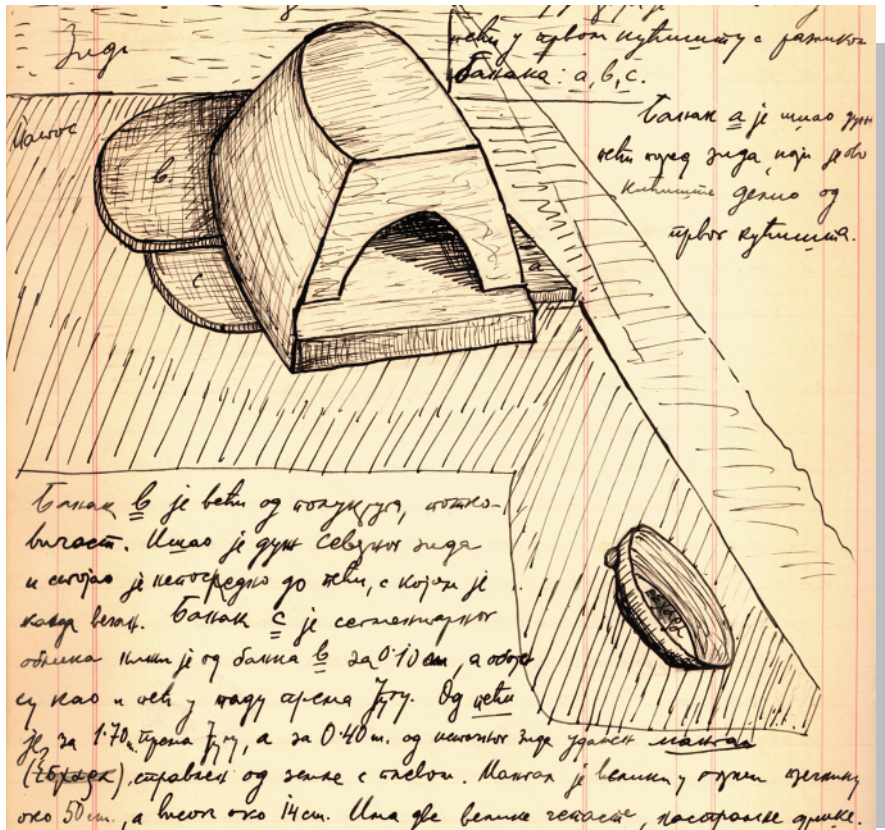 Зид
пећи у првом кућишту с разликом
банака: a, b, c.
Патос
Банак a је ишао дуж
пећи поред зида, који је ово
кућиште делио од
првог кућишта.
b
c
a
Банак b је већи од полукруга, потко-
вичаст. Ишао је дуж северног зида
и стојао је непосредно до пећи, с којом је
везан. Банак c је сегментарног
облика нижи је од банка b за 0·10 см, а обоје
су као и пећ у паду према Југу. Од пећи
за 1·70 m. према Југу, а за 0·40 m. од источног зида удаљен мангал
справљен од земље с плевом. Мангал је велики у пречнику
око 50 cm., а висок око 14 cm. Има две велике дршке.